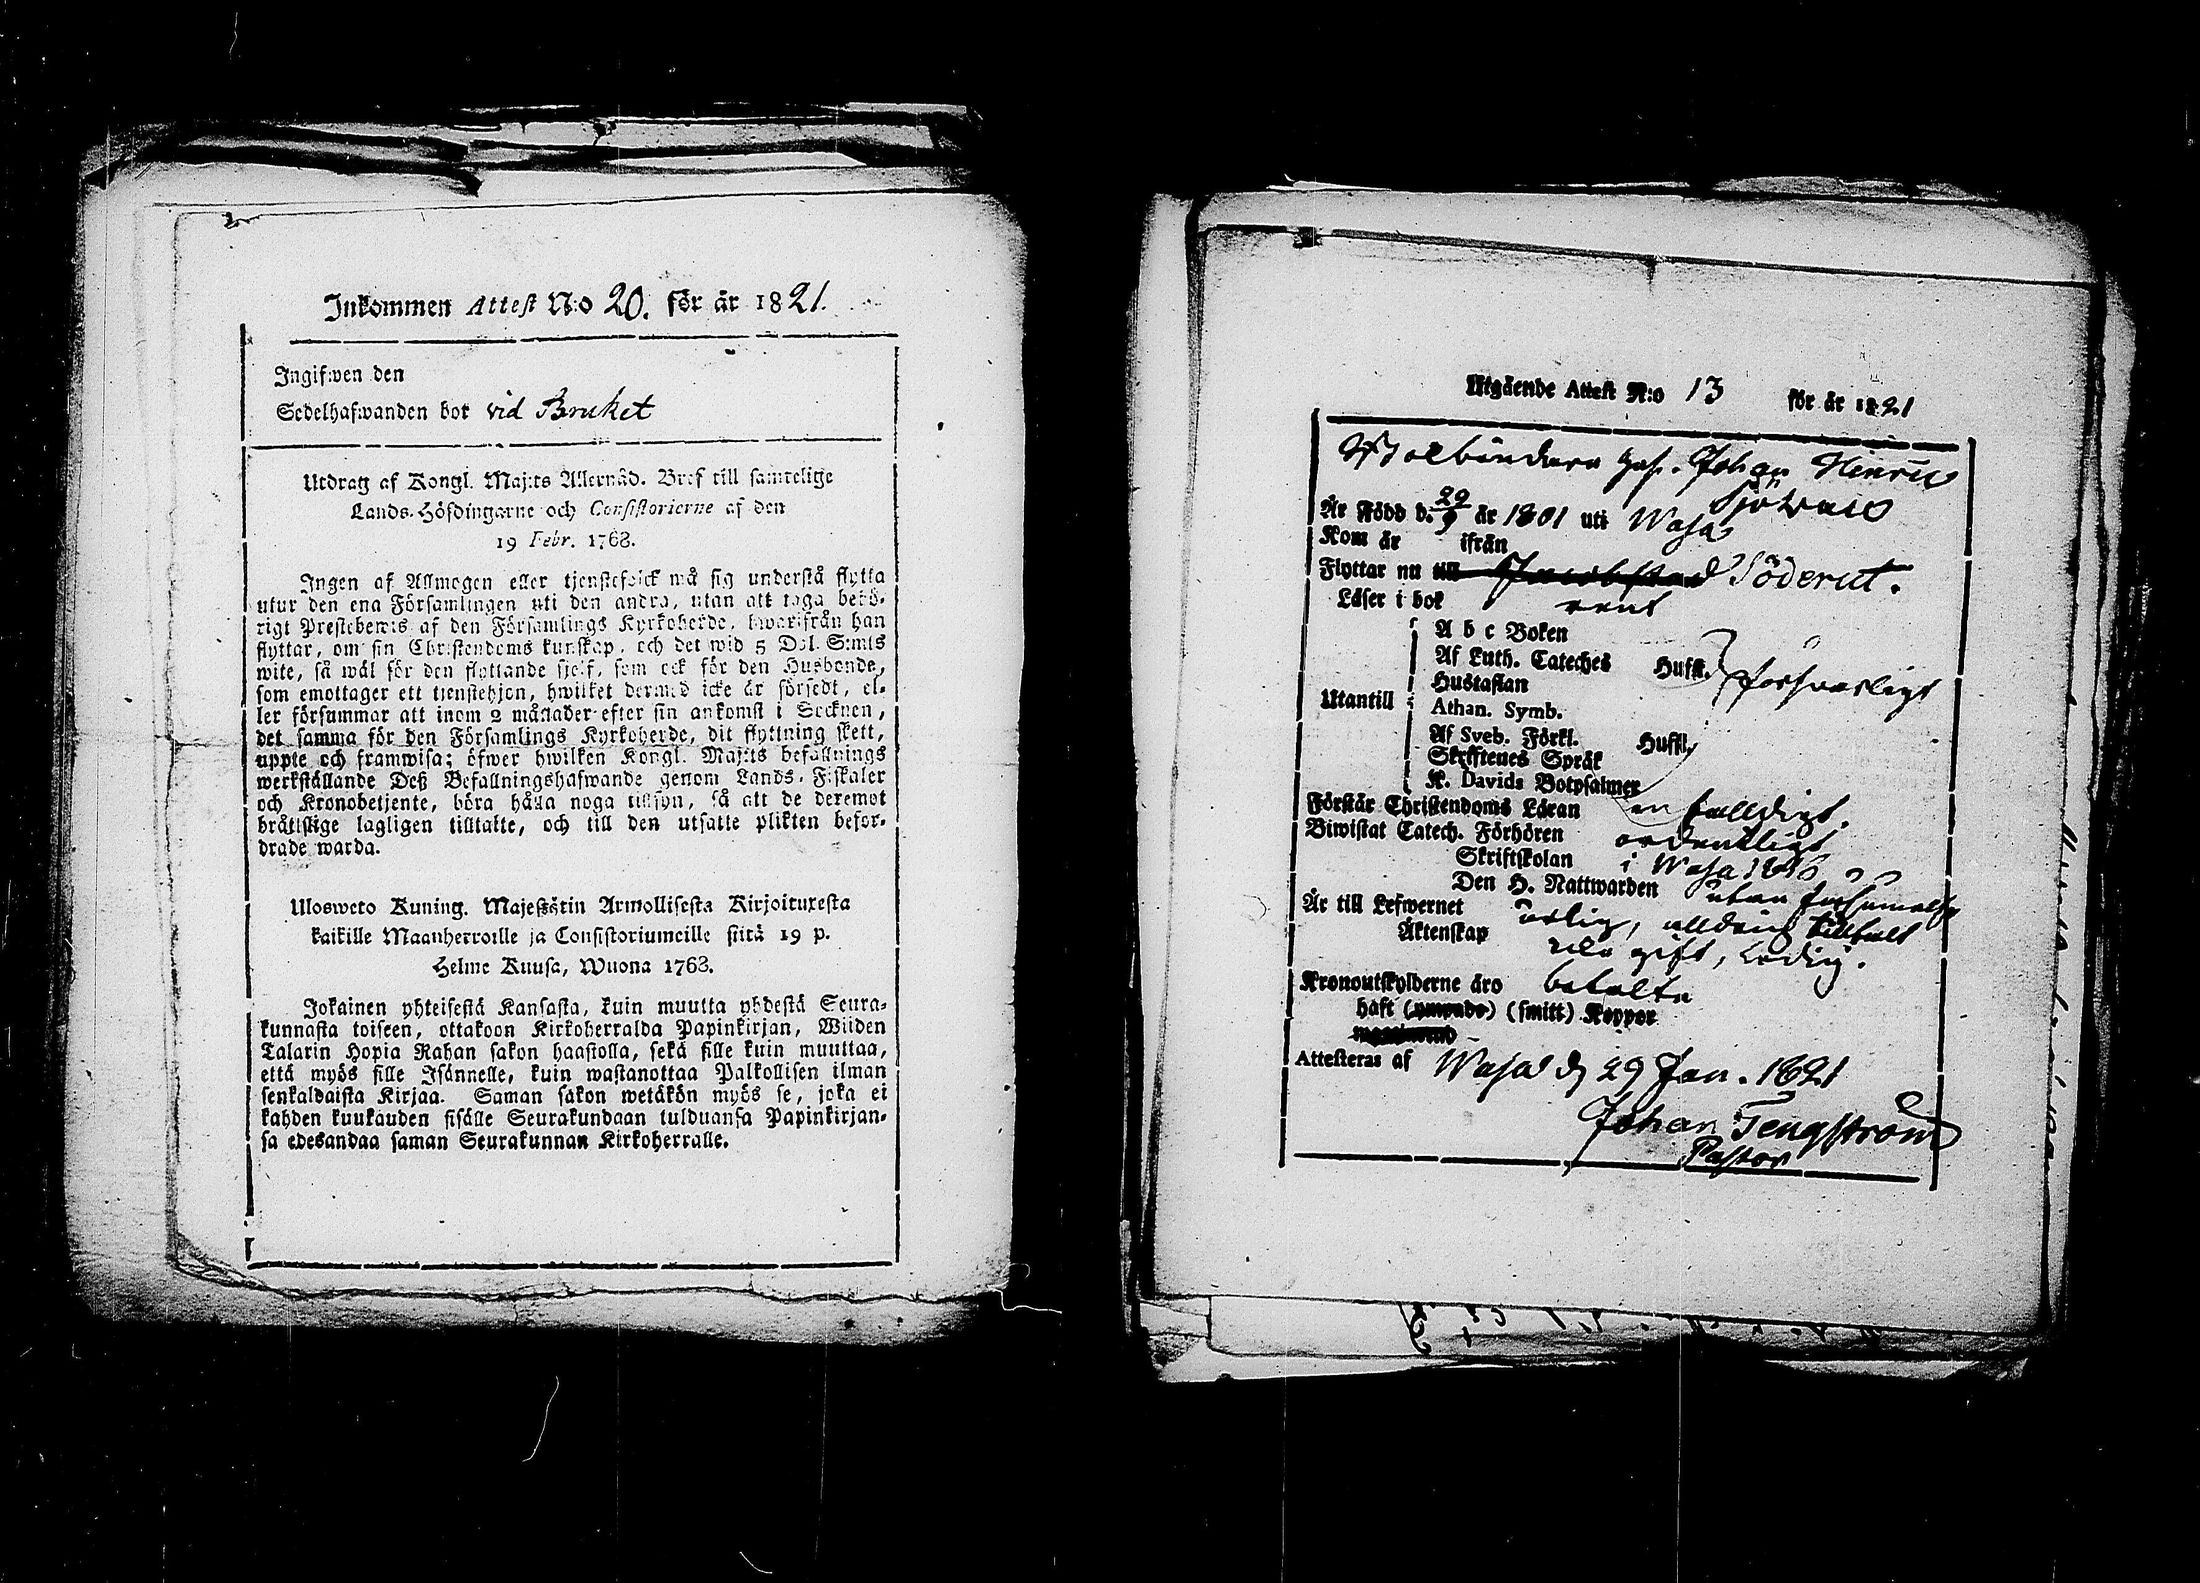 Inkommen Attest N:o 20. för år 1821.
Ingifwen den
Sedelhafwanden bor vid Bruket
Utdrag af Kongl. Maj:ts Allernåd. Bref till samtelige
Lands-Höfdingarne och Consistorierne af den
19 Febr. 1768.
Ingen af Allmogen eller tjenstefolck må sig understå flytta
utur den ena Församlingen uti den andra, utan att taga behö-
rigt Prestebewis af den Församlings Kyrkoherde, hwarifrån han
flyttar, om sin Christendoms kunskap, och det wid 5 Dal. S:mts
wite, så wäl för den flyttande sjelf, som ock för den Husbonde,
som emottager ett tjenstehjon, hwilket dermed icke är försedt, el-
ler försummar att inom 2 månader efter sin ankomst i Socknen,
det samma för den Församlings Kyrkoherde, dit flyttning skett,
uppte och framwisa; öfwer hwilken Kongl. Maj:ts befallnings
werkställande Deß Befallningshafwande genom Lands-Fiskaler
och Kronobetjente, böra hålla noga tillsyn, så att de deremot
bråttslige lagligen tilltalte, och till den utsatte plikten befor-
drade warda.
Ulosweto Kuning. Majestätin Armollisesta Kirjoituxesta
kaikille Maanherroille ja Consistoriumeille siitä 19 p.
Helme Kuusa, Wuona 1768.
Jokainen yhteisestä Kansasta, kuin muutta yhdestä Seura-
kunnasta toiseen, ottakoon Kirkoherralda Papinkirjan, Wiiden
Talarin Hopia Rahan sakon haastolla, sekä sille kuin muuttaa,
että myös sille Isännelle, kuin wastanottaa Palkollisen ilman
senkaldaista Kirjaa. Saman sakon wetäkön myös se, joka ei
kahden kuukauden sisälle Seurakundaan tulduansa Papinkirjan-
sa edesandaa saman Seurakunnan Kirkoherralle.
Utgående Attest N:o 13 för år 1821
Johan Hinric
Är Född d. 29/9 år 1801 uti Wasa
Kom år ifrån
Flyttar nu till Jacobstad Söderut.
Läser i bok rent
A b c Boken
Af Luth. Cateches Hufst. försvarligt
Hustaflan
Utantill Athan. Symb.
Af Sveb. Förkl. Hufst.
Skriftenes Språk
K. Davids Botpsalmer
Förstår Christendoms Läran enfalldigt.
Biwistat Catech. Förhören ordentligt
Skriftskolan i Wasa
Den H. Nattwarden utan försumelse
Är till Lefwernet ärlig, alldrig tilltalt
Äktenskap gift, Ledig.
Kronoutskylderne äro betalte
haft (ympade) (smitt) Koppor
Attesteras af Wasa d 29 Jan. 1821
Johan Tengström
Pastor